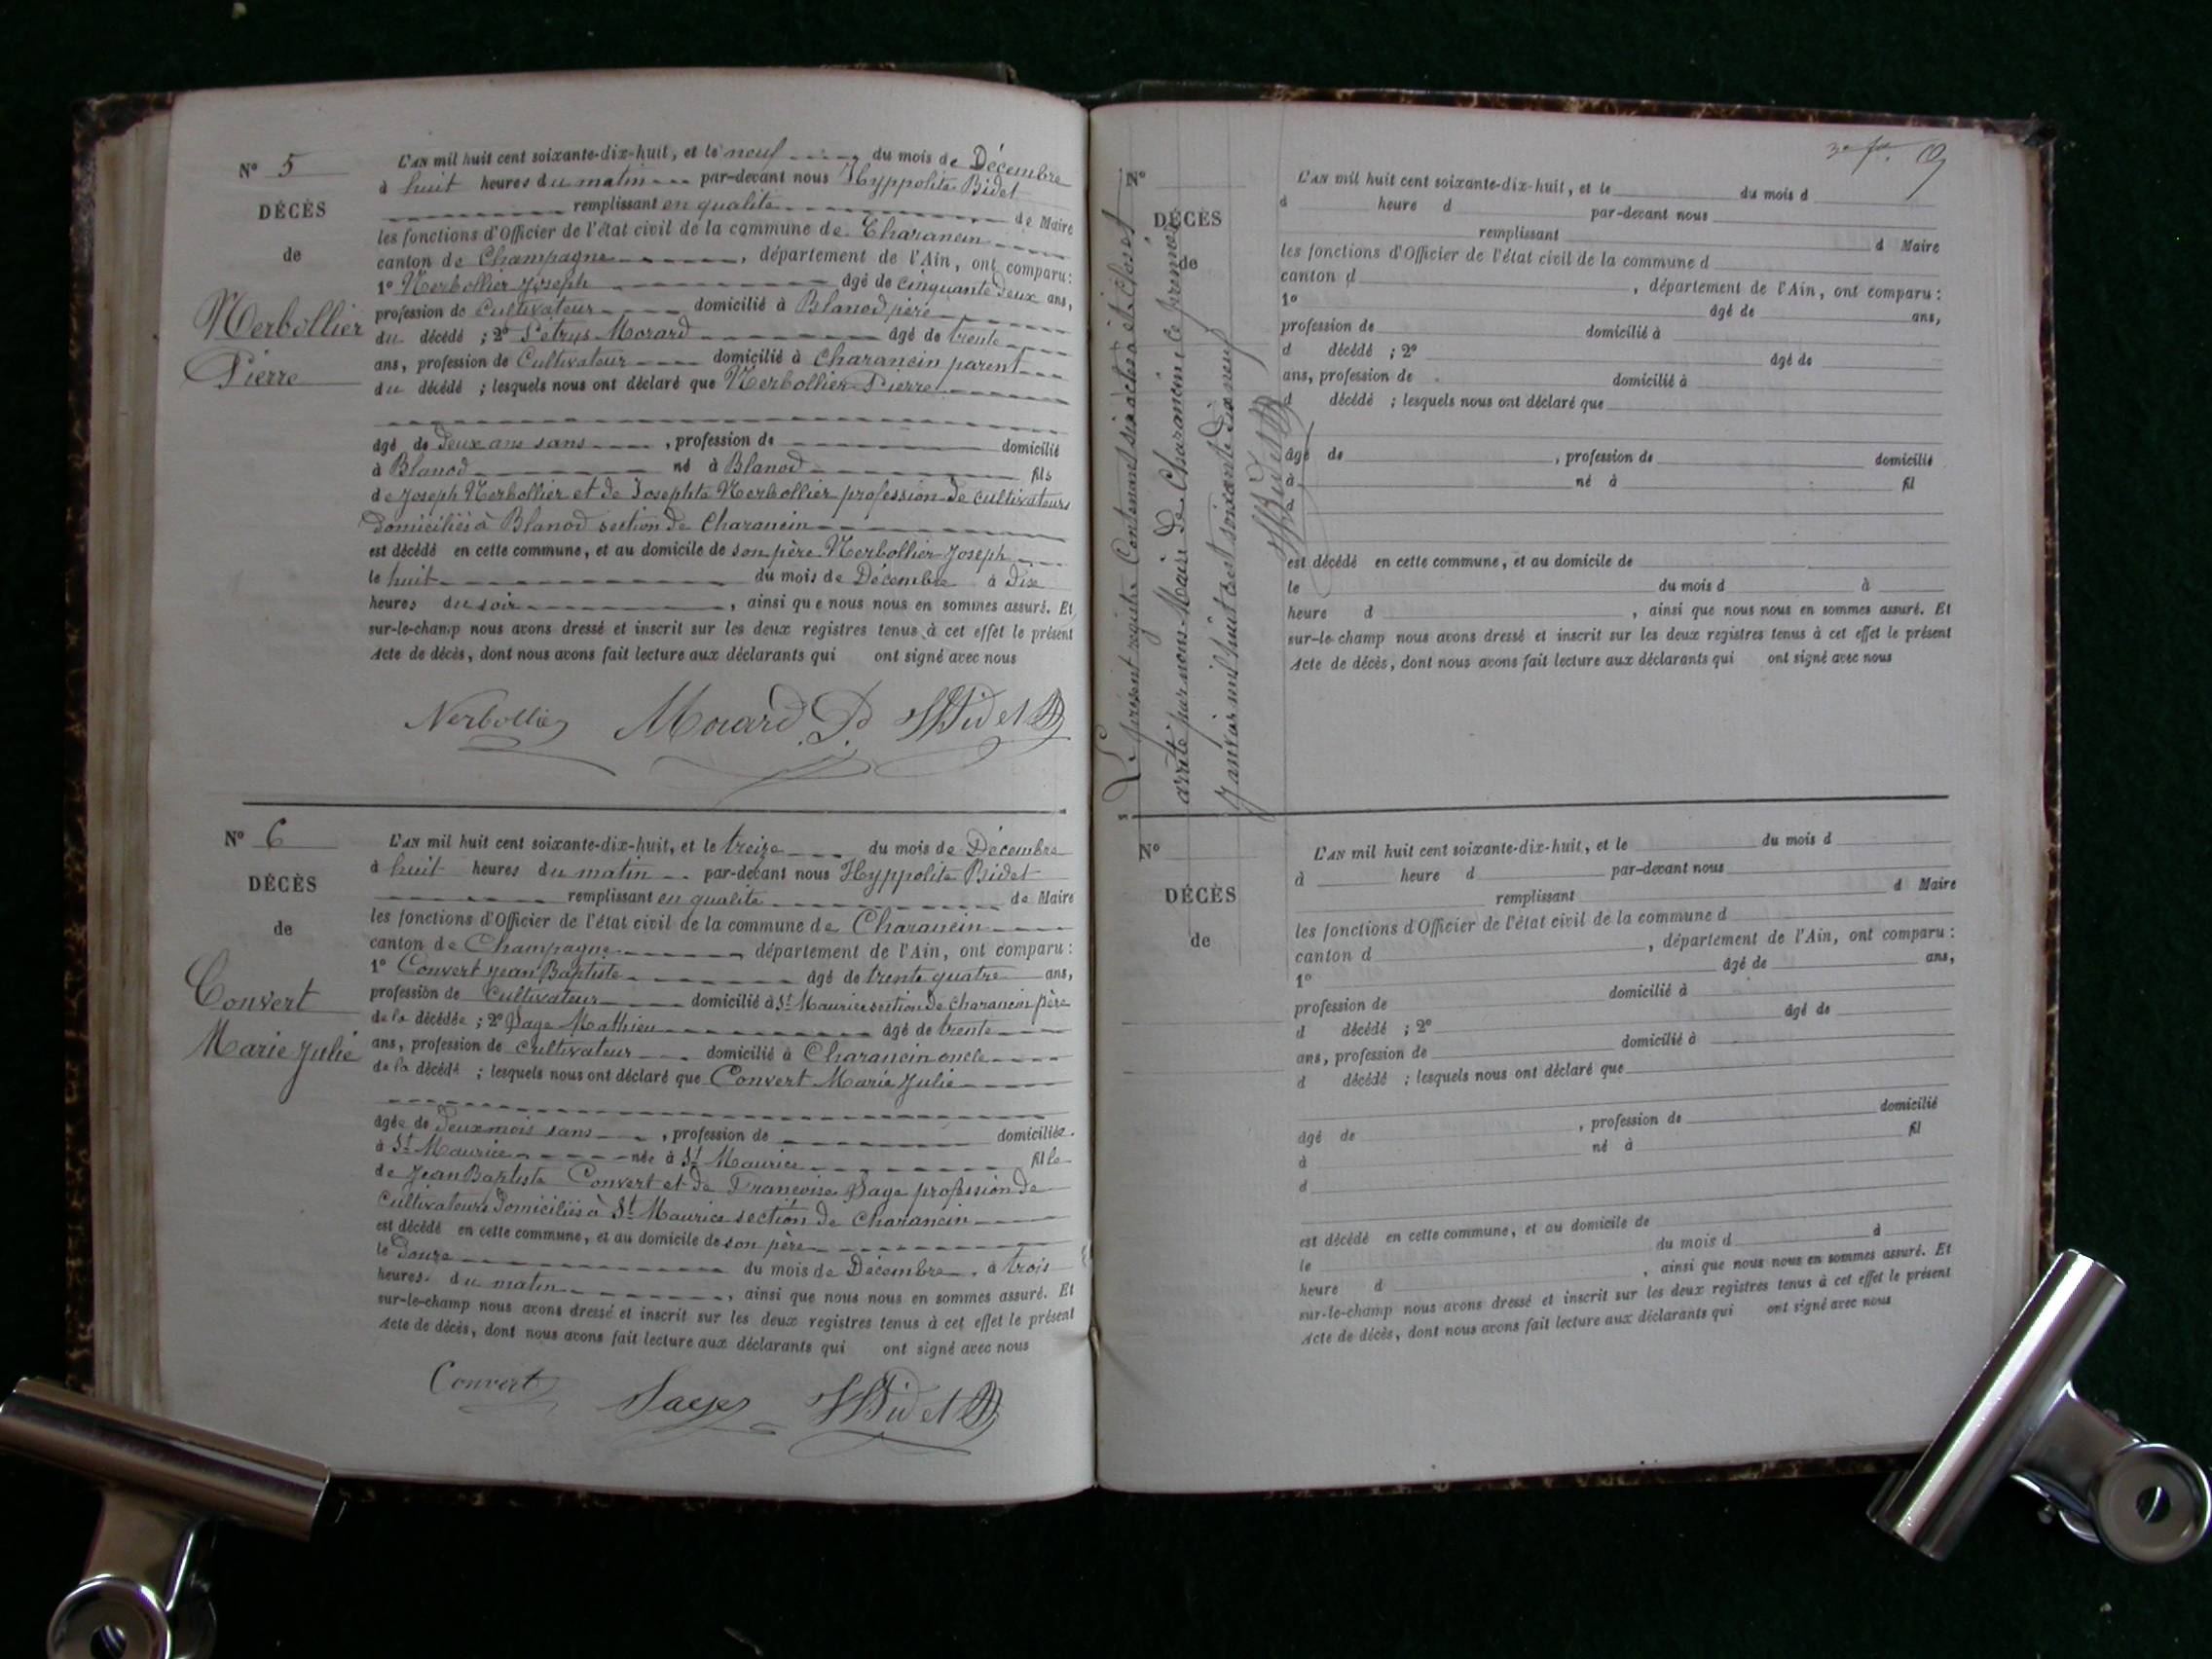 N° 5
DÉCÈS
de
Nerbollier
Pierre
L'AN mil huit cent soixante-dix-huit, et le neuf du mois de Décembre
à huit heures du matin par-devant nous Hyppolite Bidet
remplissant en qualité de Maire
les fonctions d'Officier de l'état civil de la commune de Charancin
canton de Champagne, département de l'Ain, ont comparu:
1° Nerbollier Joseph âgé de cinquante deux ans,
profession de Cultivateur domicilié à Blanod père
du décédé ; 2° Pétrus Morard âgé de trente
ans, profession de Cultivateur domicilié à Charancin parent
du décédé ; lesquels nous ont déclaré que Nerbollier Pierre
âgé de Deux ans sans, profession de domicilié
à Blanod né à Blanod fils
de Joseph Nerbollier et de Josephte Nerbollier profession de cultivateurs
domiciliés à Blanod section de Charancin
est décédé en cette commune, et au domicile de son père Nerbollier Joseph
le huit du mois de Décembre à dix
heures du soir, ainsi que nous nous en sommes assuré. Et
sur-le-champ nous avons dressé et inscrit sur les deux registres tenus à cet effet le présent
Acte de décès, dont nous avons fait lecture aux déclarants qui ont signé avec nous
Nerbollier Morard P HBidet
N° 6
DÉCÈS
de
Convert
Marie Julie
L'AN mil huit cent soixante-dix-huit, et le treize du mois de Décembre
à huit heures du matin par-devant nous Hyppolite Bidet
remplissant en qualité de Maire
les fonctions d'Officier de l'état civil de la commune de Charancin
canton de Champagne département de l'Ain, ont comparu :
1° Convert Jean Baptiste âgé de trente quatre ans,
profession de Cultivateur domicilié à St Maurice section de Charancin père
de la décédée ; 2° Page Mathieu âgé de trente
ans, profession de cultivateur domicilié à Charancin oncle
de la décédé ; lesquels nous ont déclaré que Convert Marie Julie
âgée de Deux mois sans, profession de domiciliée
à St Maurice née à St Maurice fille
de Jean Baptiste Convert et de Francoise Page profession de
Cultivateurs Domiciliés à St Maurice section de Charancin
est décédé en cette commune, et au domicile de son père
le Douze du mois de Décembre, à trois
heures du matin, ainsi que nous nous en sommes assuré. Et
sur-le-champ nous avons dressé et inscrit sur les deux registres tenus à cet effet le présent
Acte de décès, dont nous avons fait lecture aux déclarants qui ont signé avec nous
Convert Page HBidet
9
Le présent registre Contenant six actes a été Clos et
arrêté par nous Maire de Charancin le premier
Janvier mil huit cent soixante Dix neuf
HBidet
N°
DÉCÈS
de
L'AN mil huit cent soixante-dix-huit, et le du mois d
à heure d par-devant nous
remplissant d Maire
les fonctions d'Officier de l'état civil de la commune d
canton d , département de l'Ain, ont comparu :
1° âgé de ans,
profession de domicilié à
d décédé ; 2° âgé de
ans, profession de domicilié à
d décédé ; lesquels nous ont déclaré que
âgé de , profession de domicilié
à né à fil
d
est décédé en cette commune, et au domicile de
le du mois d à
heure d , ainsi que nous nous en sommes assuré. Et
sur-le-champ nous avons dressé et inscrit sur les deux registres tenus à cet effet le présent
Acte de décès, dont nous avons fait lecture aux déclarants qui ont signé avec nous
N°
DÉCÈS
de
L'AN mil huit cent soixante-dix-huit, et le du mois d
à heure d par-devant nous
remplissant d Maire
les fonctions d'Officier de l'état civil de la commune d
canton d , département de l'Ain, ont comparu :
1° âgé de ans,
profession de domicilié à
d décédé ; 2° âgé de
ans, profession de domicilié à
d décédé ; lesquels nous ont déclaré que
âgé de , profession de domicilié
à né à fil
d
est décédé en cette commune, et au domicile de
le du mois d à
heure d , ainsi que nous nous en sommes assuré. Et
sur-le-champ nous avons dressé et inscrit sur les deux registres tenus à cet effet le présent
Acte de décès, dont nous avons fait lecture aux déclarants qui ont signé avec nous